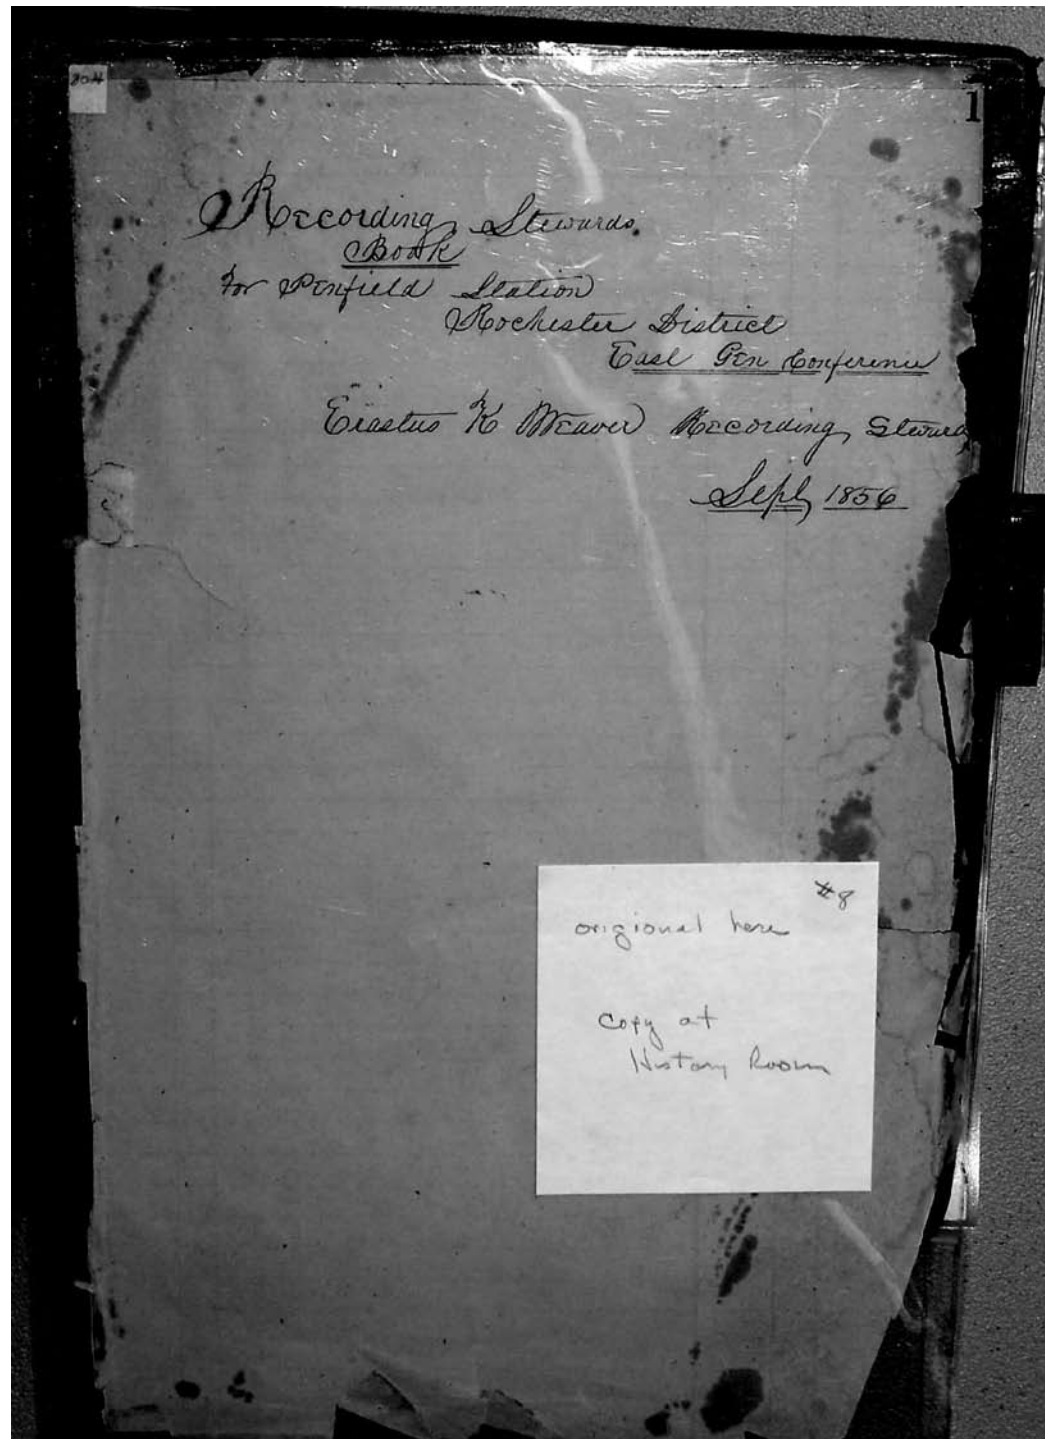 804
1
Recording Stewards.
Book
for Penfield Station
Rochester District
East Gen Conference
Erastus K Weaver Recording Steward
Sept, 1856
#8
origional here
copy at
History Room